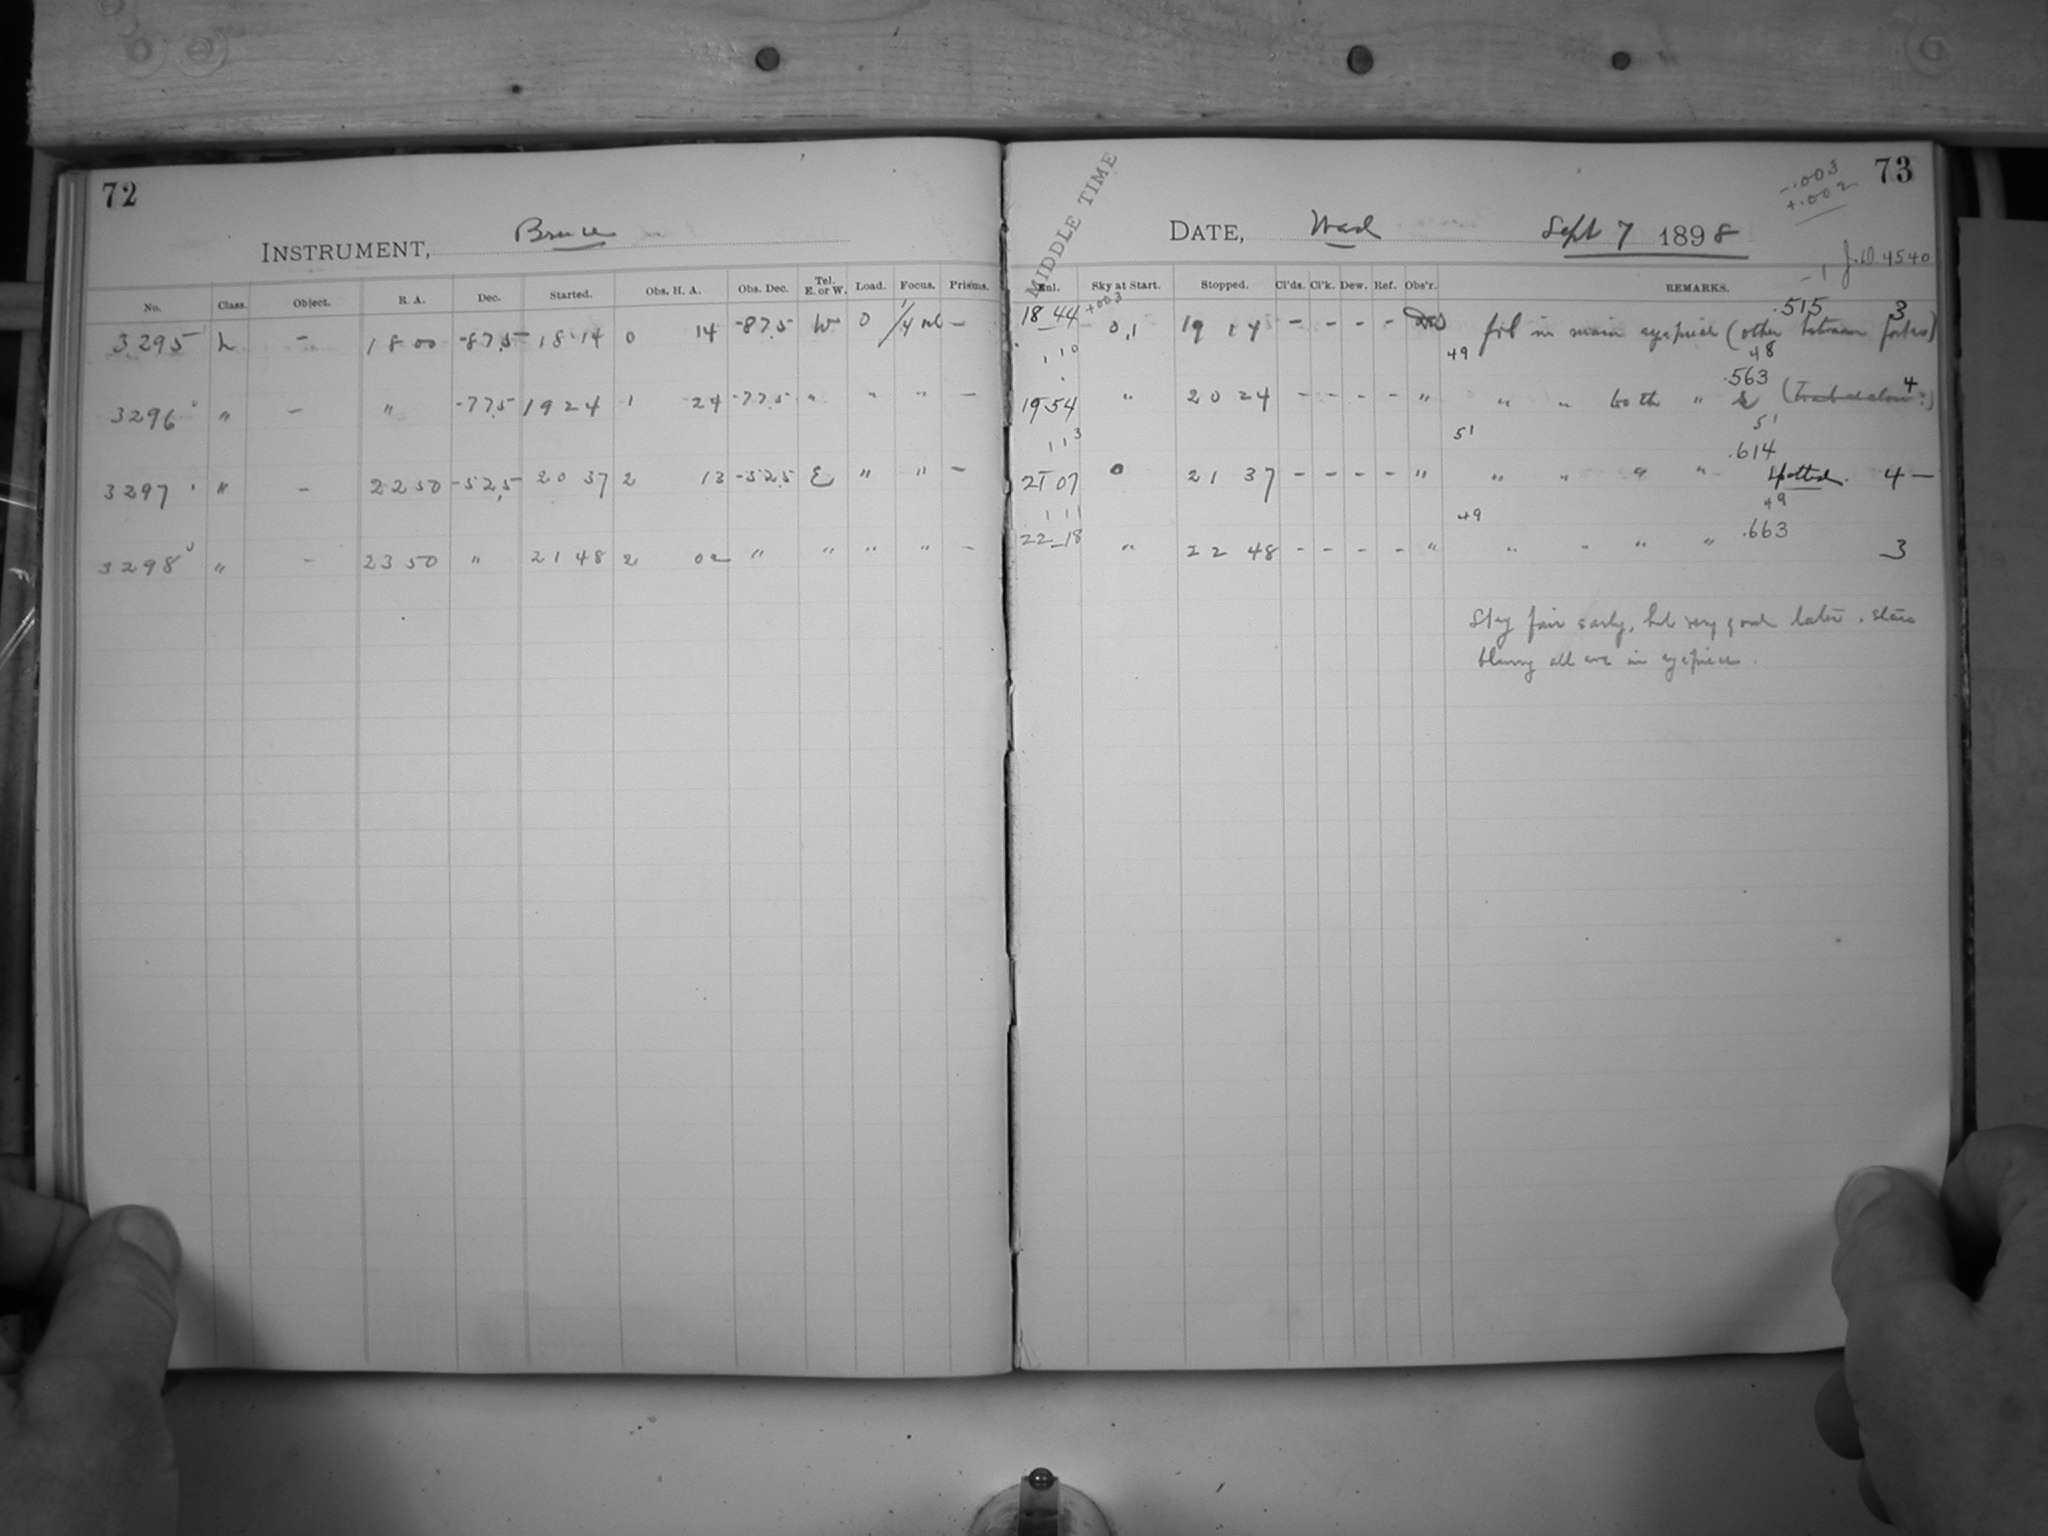 72
INSTRUMENT, Bruce
No. Class. Object. R. A. Dec. Started. Obs. H. A. Obs. Dec. Tel. E. or W. Load. Focus. Prisms.
3295 L - 18 00 -87.5 18 14 0 14 -87.5 W 0 -
3296 " - " -77.5 19 24 1 24 -77.5 " " " -
3297 " - 22 50 -52.5 20 37 2 13 -52.5 E " " -
3298 " - 23 50 " 21 48 2 02 " " " " -
73
-.003
+.002
MIDDLE TIME
DATE, Wed Sept 7 1898
J.D. 4540
-1
Enl. Sky at Start. Stopped. Cl'ds. Cl'k. Dew. Ref. Obs'r. REMARKS.
+003
.515
18 44 0,1 19 14 - - - - in main eyepiece (other between forks) 3
1 10 49 48
.563
19 54 " 20 24 - - - - " " " both " & 4
1 13 51 51
.614
21 07 0 21 37 - - - - " " " " " Spotted. 4 -
1 11 49 49
.663
22 18 " 22 48 - - - - " " " " " 3
Sky fair early, but very good later. Stars
blurry all eve in eyepiece.